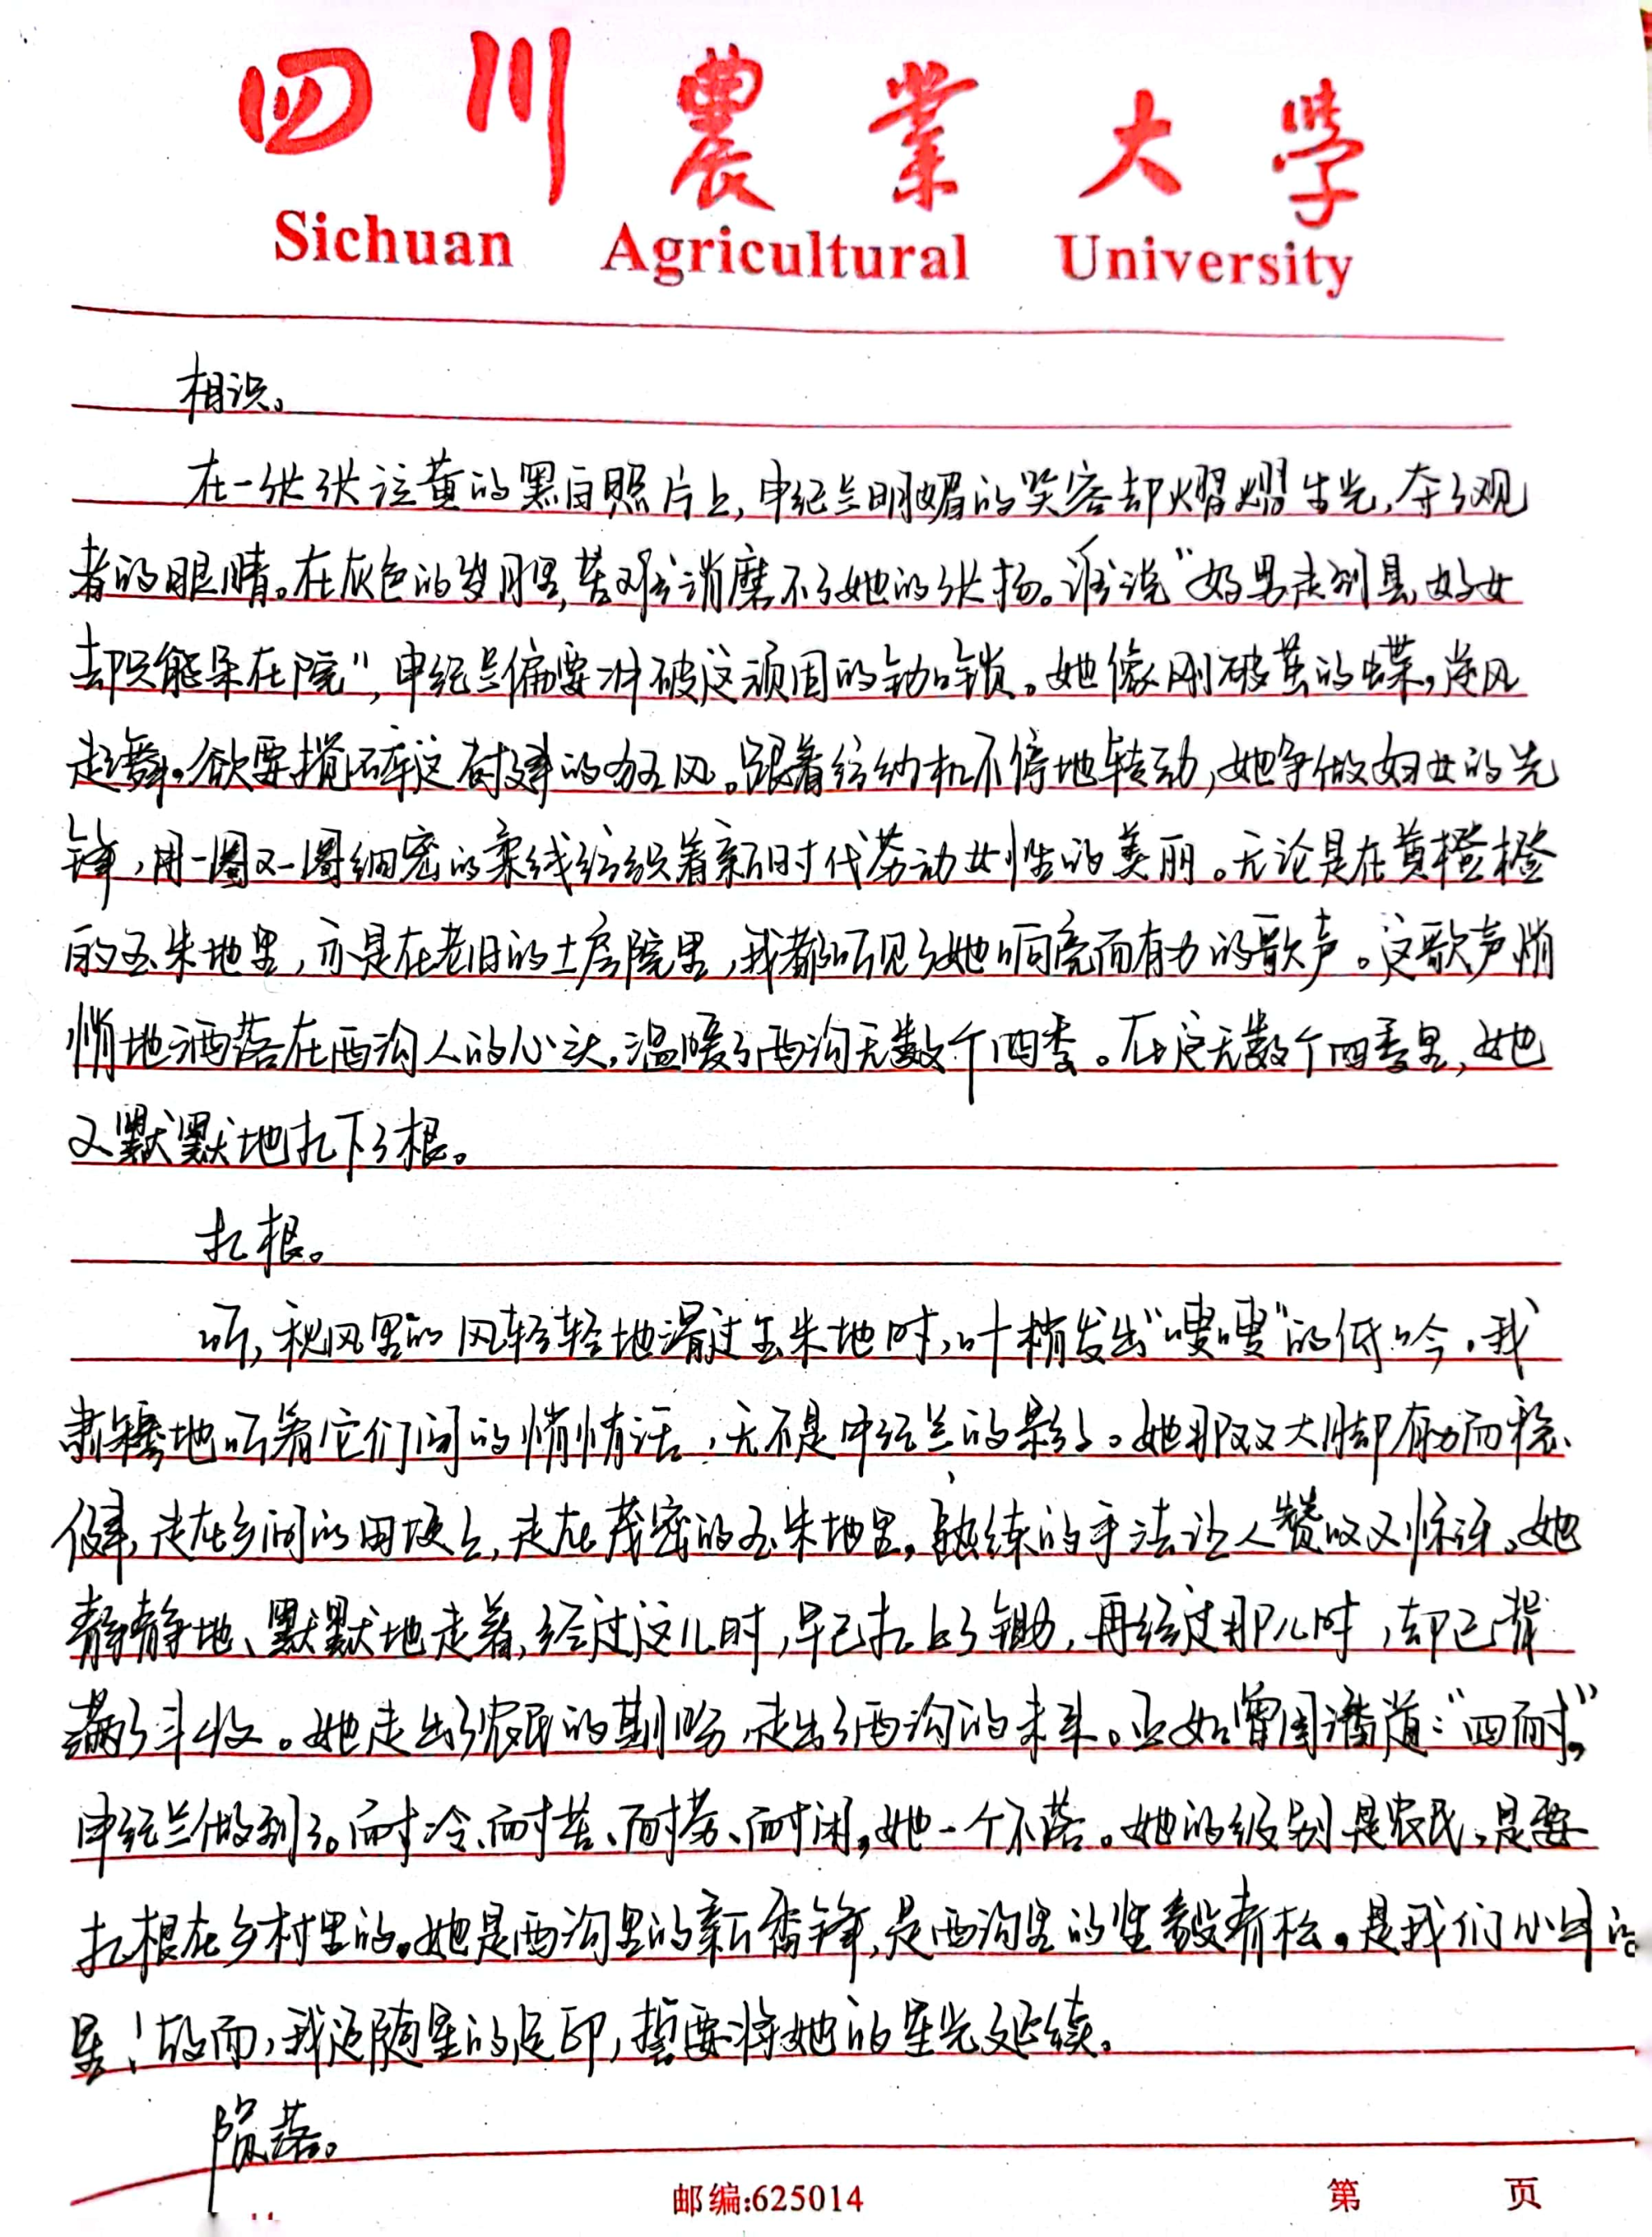 四川農業大學
Sichuan Agricultural University
相识。
在一张张泛黄的黑白照片上,申纪兰明媚的笑容却熠熠生光,夺了观
者的眼睛。在灰色的岁月里,苦难消磨不了她的张扬。谁说“好男走到县,好女
却只能呆在院”,申纪兰偏要冲破这顽固的枷锁。她像刚破茧的蝶,逆风
起舞。欲要搅碎这封建的狂风。跟着纺纱机不停地转动,她争做妇女的先
锋,用一圈又一圈细密的柔线纺织着新时代劳动女性的美丽。无论是在黄橙橙
的玉米地里,亦是在老旧的土房院里,我都听见了她响亮而有力的歌声。这歌声悄
悄地洒落在西沟人的心头,温暖了西沟无数个四季。在这无数个四季里,她
又默默地扎下了根。
扎根。
听,秋风里的风轻轻地滑过玉米地时,叶梢发出“嗖嗖”的低吟。我
肃穆地听着它们间的悄悄话,无不是申纪兰的影子。她那双大脚有力而稳
健,走在乡间的田埂上,走在茂密的玉米地里,熟练的手法让人赞叹又惊讶。她
静静地、默默地走着,经过这儿时,早已扎上了锄,再经过那儿时,却已背
满了丰收。她走出了农民的期盼,走出了西沟的未来。正如曾国藩道:“四耐”,
申纪兰做到了。耐冷、耐苦、耐劳、耐闲,她一个不落。她的级别是农民,是要
扎根在乡村里的。她是西沟里的新雷锋,是西沟里的坚毅青松。是我们心中的
星!故而,我追随星的足印,誓要将她的星光延续。
陨落。
邮编:625014
第 页